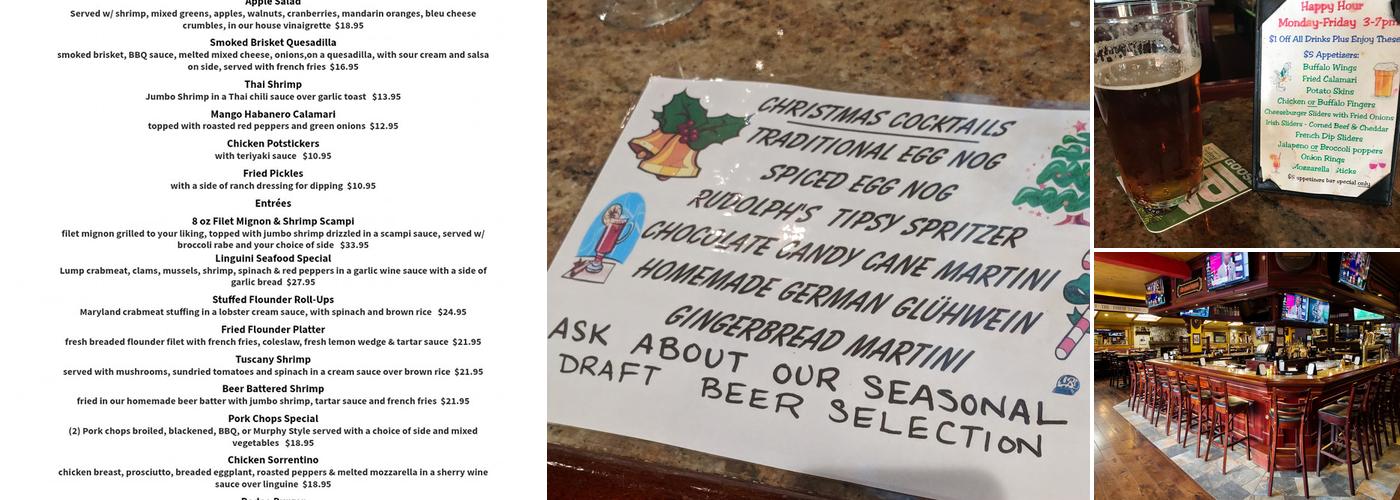 Apple Salad
Served w/ shrimp, mixed greens, apples, walnuts, cranberries, mandarin oranges, bleu cheese
crumbles, in our house vinaigrette $18.95
Smoked Brisket Quesadilla
smoked brisket, BBQ sauce, melted mixed cheese, onions,on a quesadilla, with sour cream and salsa
on side, served with french fries $16.95
Thai Shrimp
Jumbo Shrimp in a Thai chili sauce over garlic toast $13.95
Mango Habanero Calamari
topped with roasted red peppers and green onions $12.95
Chicken Potstickers
with teriyaki sauce $10.95
Fried Pickles
with a side of ranch dressing for dipping $10.95
Entrées
8 oz Filet Mignon & Shrimp Scampi
filet mignon grilled to your liking, topped with jumbo shrimp drizzled in a scampi sauce, served w/
broccoli rabe and your choice of side $33.95
Linguini Seafood Special
Lump crabmeat, clams, mussels, shrimp, spinach & red peppers in a garlic wine sauce with a side of
garlic bread $27.95
Stuffed Flounder Roll-Ups
Maryland crabmeat stuffing in a lobster cream sauce, with spinach and brown rice $24.95
Fried Flounder Platter
fresh breaded flounder filet with french fries, coleslaw, fresh lemon wedge & tartar sauce $21.95
Tuscany Shrimp
served with mushrooms, sundried tomatoes and spinach in a cream sauce over brown rice $21.95
Beer Battered Shrimp
fried in our homemade beer batter with jumbo shrimp, tartar sauce and french fries $21.95
Pork Chops Special
(2) Pork chops broiled, blackened, BBQ, or Murphy Style served with a choice of side and mixed
vegetables $18.95
Chicken Sorrentino
chicken breast, prosciutto, breaded eggplant, roasted peppers & melted mozzarella in a sherry wine
sauce over linguine $18.95
CHRISTMAS COCKTAILS
TRADITIONAL EGG NOG
SPICED EGG NOG
RUDOLPH'S TIPSY SPRITZER
CHOCOLATE CANDY CANE MARTINI
HOMEMADE GERMAN GLÜHWEIN
GINGERBREAD MARTINI
ASK ABOUT OUR SEASONAL
DRAFT BEER SELECTION
Happy Hour
Monday-Friday 3-7pm
$1 Off All Drinks Plus Enjoy These
$5 Appetizers:
Buffalo Wings
Fried Calamari
Potato Skins
Chicken or Buffalo Fingers
Cheeseburger Sliders with Fried Onions
Irish Sliders - Corned Beef & Cheddar
French Dip Sliders
Jalapeno or Broccoli poppers
Onion Rings
Mozzarella Sticks
$5 appetizers bar special only
GOOSE
IPA